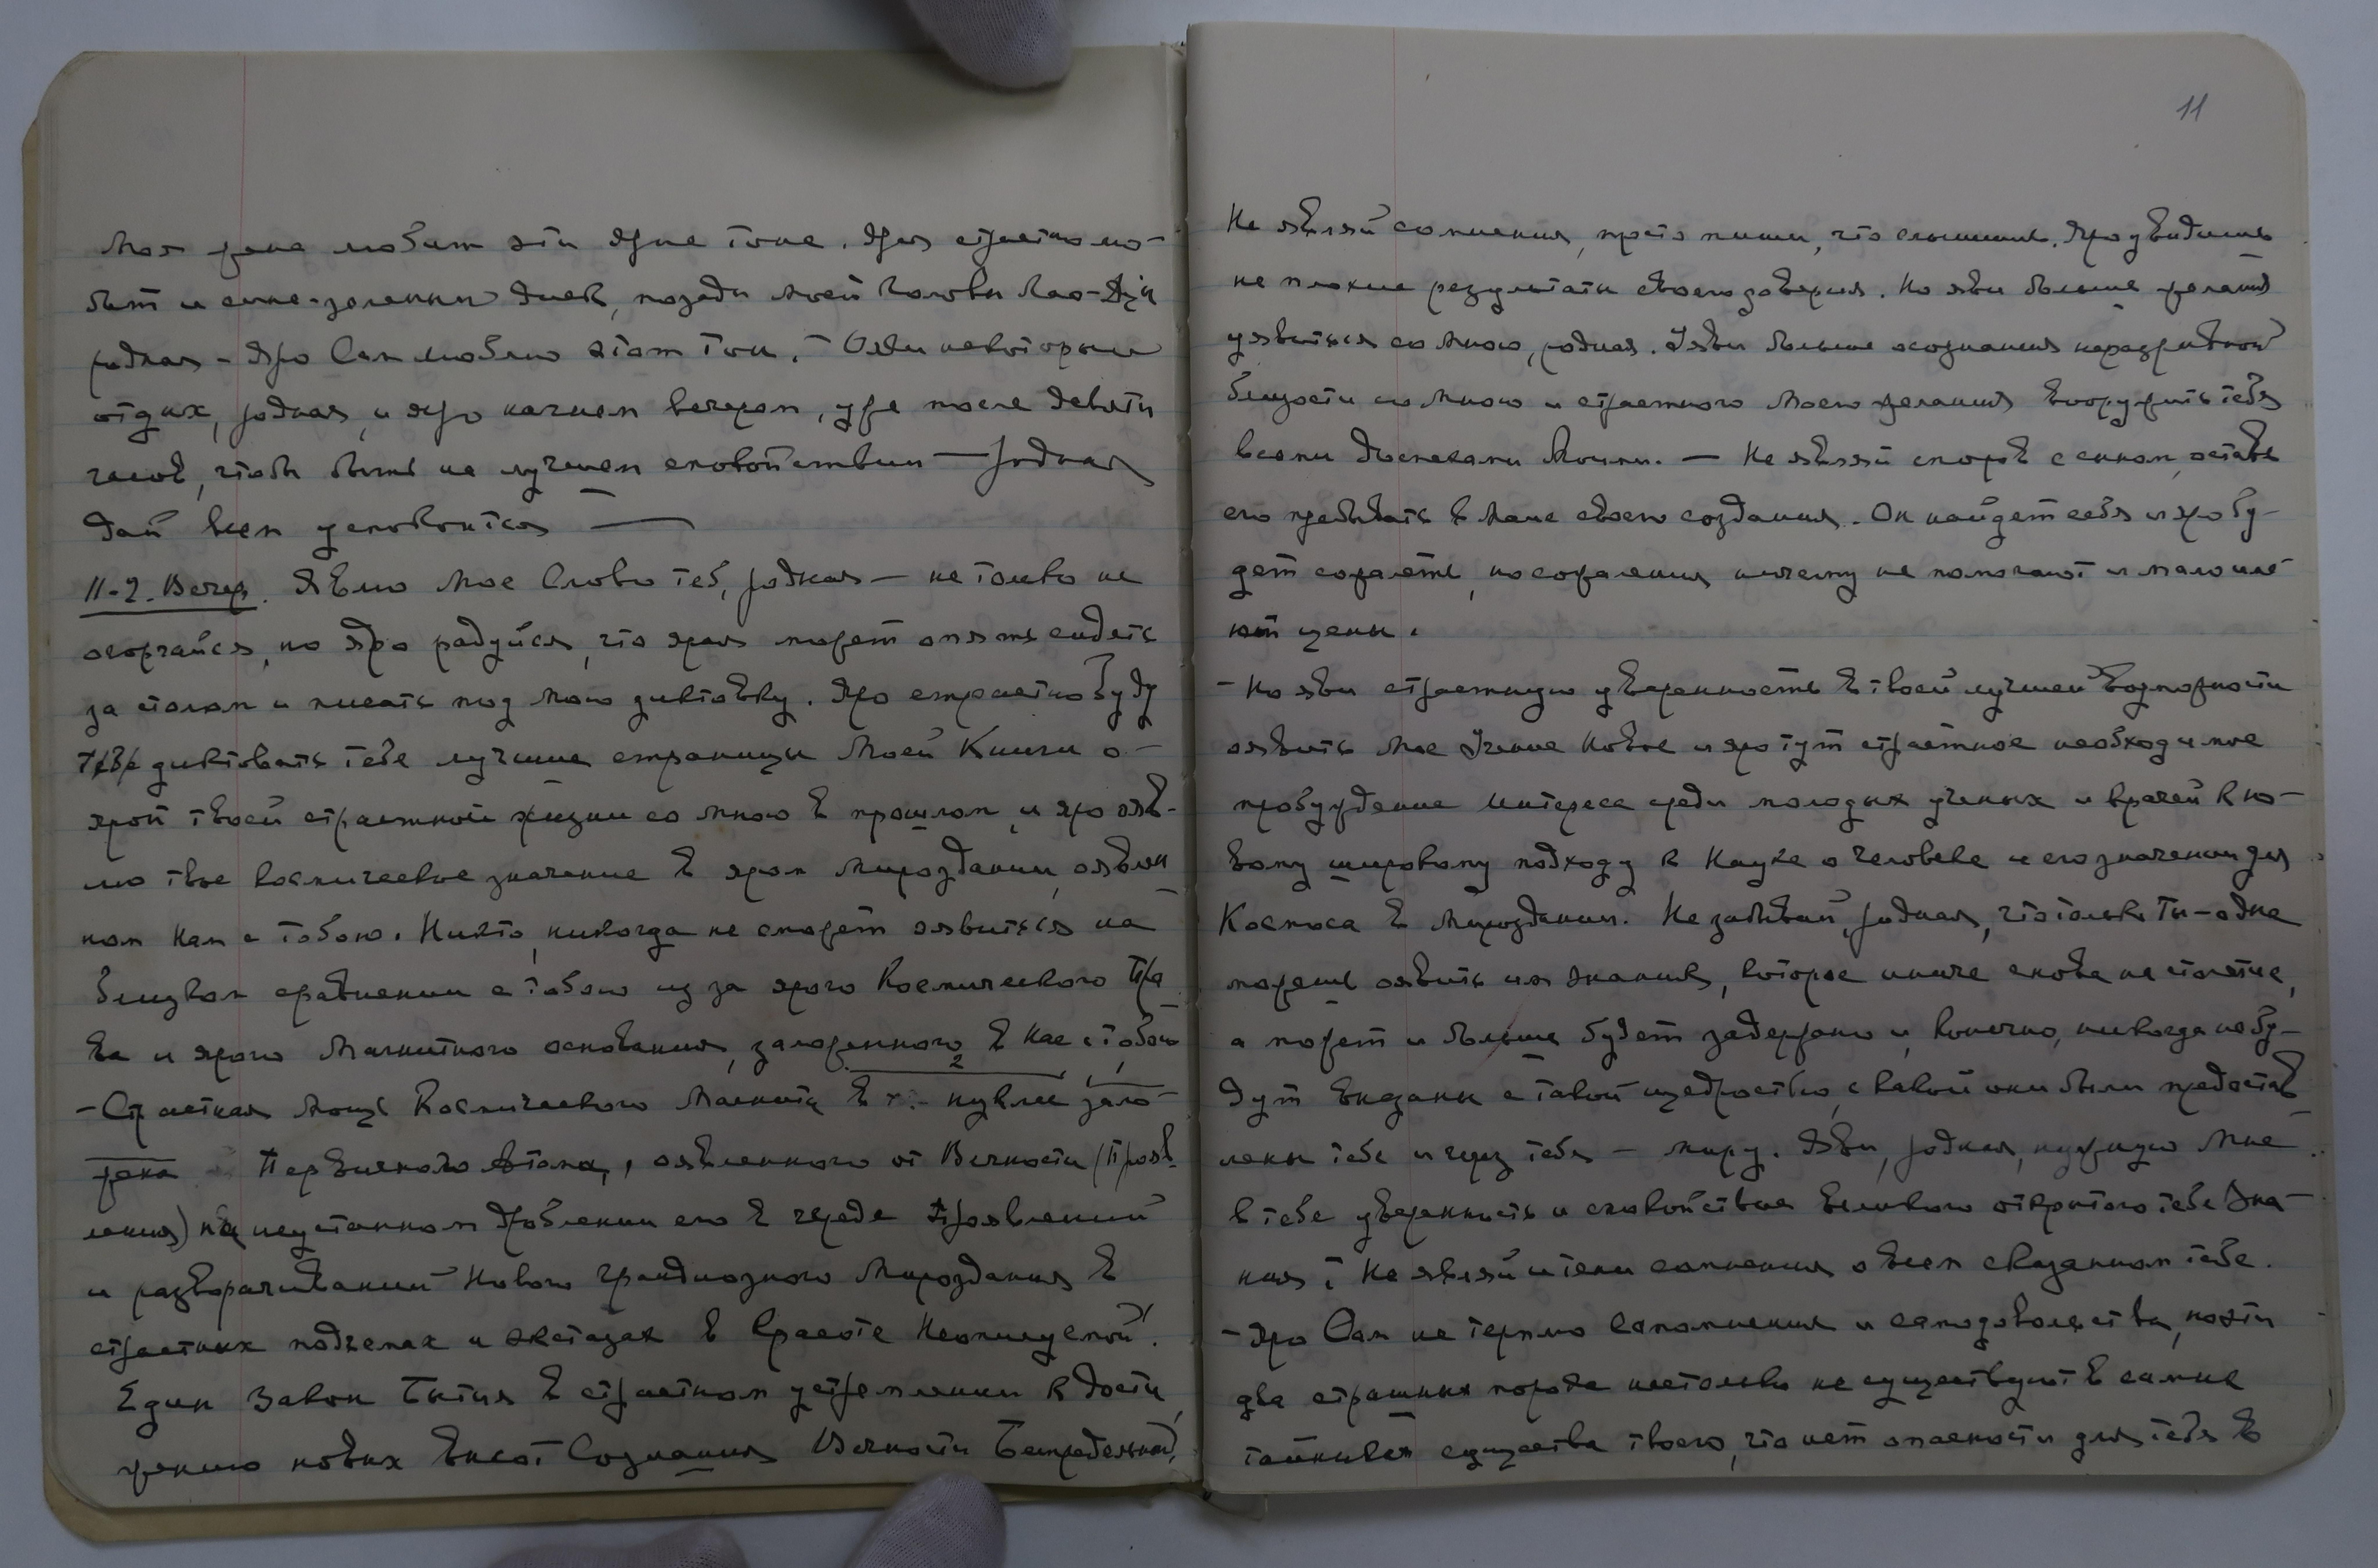 Моя рана любит эти ярые тоны. Ярая страстно лю-
бит и сине-зеленый блеск, позади моей головы Лао-Дзы
родная - Яро Сам люблю этот тон. - Ояви некоторый
отдых, родная, и яро начнем вечером, уже после девяти
часов, чтобы быть на лучшем спокойствии — Родная
дай всем успокоиться —
11-2. Вечер. Явлю Мое Слово теб, родная — не только не
огорчайся, но яро радуйся, что ярая может опять сидеть
за столом и писать под мою диктовку. Яро страстно буду
диктовать тебе лучшие страницы Моей Книги о-
ярой твоей страстной жизни со мною в прошлом, и яро явл-
лю твое космическое значение в яром Мироздании, оявлен
ном нам с тобою. Никто, никогда не сможет оявиться на
близком сравнении с тобою из за ярого Космического Пра
ва и ярого Магнитного основания, заложенного в нас с тобою
- Страстная мощь Космического Магнита в нуклее зало-
жена Первичного Атома, оявленного от Вечности (Прояв-
ления) на неустанном дроблении его в череде Проявлений
и разворачиваний Нового грандиозного Мироздания в
страстных подъемах и экстазах в Красоте Неописуемой!
Един Закон Бытия в страстном устремлении к дости
жению новых высот Сознания Вечности Беспредельной,
11
Не являй сомнения, просто пиши, что слышишь. Яро увидишь
не плохие результаты своего доверия. Но яви больше желания
уявиться со Мною, родная. Уяви больше осознания неразрывной
близости со Мною и страстного Моего желания вооружить тебя
всеми доспехами Моими. — Не являй споров с сыном, оставь
его пребывать в Мане своего создания. Он найдет себя и яро бу-
дет сожалеть, но сожаления ничему не помогают и мало име
ют цены.
- Но яви страстную уверенность в твоей лучшей возможности
оявить Мое Учение Новое и яро тут страстное необходимое
пробуждение интереса среди молодых ученых и врачей к но-
вому широкому подходу к Науке о человеке и его значении для
Космоса в Мироздании. Не забывай, родная, что только Ты - одна
можешь оявить им знания, которое иначе снова на столетие,
а может и больше будет задержано и, конечно, никогда не бу-
дут выданы с такой щедростью, с какой они были предостав
лены тебе и через тебя — миру. Яви, родная, нужную Мне
в тебе уверенность и спокойствие великого открытого тебе Зна-
ния! Не являй и тени сомнения о всем сказанном тебе.
- Яро Сам не терплю Самомнения и самодовольства, но эти
два страшных порока настолько не существуют в самых
тайниках существа твоего, что нет опасности для тебя в